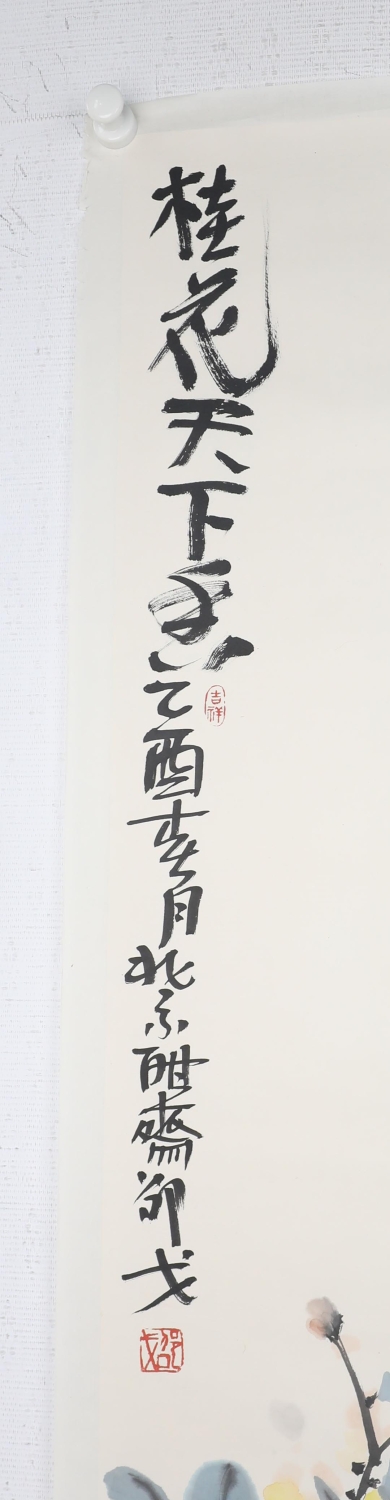 桂花天下香乙酉春月北京酣齋邵戈
吉祥
邵戈